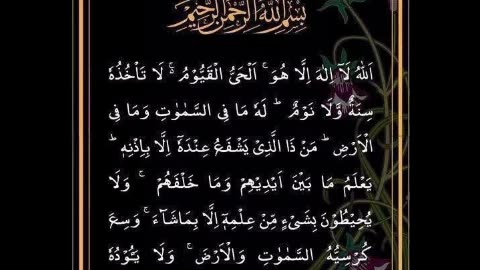 بِسْمِ اللهِ الرَّحْمٰنِ الرَّحِيْمِ
اَللهُ لَآ اِلٰهَ اِلَّا هُوَ ۚ اَلْحَیُّ الْقَیُّوْمُ ۚ۬ لَا تَاْخُذُهٗ
سِنَةٌ وَّلَا نَوْمٌ ؕ لَهٗ مَا فِی السَّمٰوٰتِ وَمَا فِی
الْاَرْضِ ؕ مَنْ ذَا الَّذِیْ یَشْفَعُ عِنْدَهٗۤ اِلَّا بِاِذْنِهٖ ؕ
یَعْلَمُ مَا بَیْنَ اَیْدِیْهِمْ وَمَا خَلْفَهُمْ ۚ وَلَا
یُحِیْطُوْنَ بِشَیْءٍ مِّنْ عِلْمِهٖۤ اِلَّا بِمَاشَآءَ ۚ وَسِعَ
كُرْسِیُّهُ السَّمٰوٰتِ وَالْاَرْضَ ۚ وَلَا یَـُٔوْدُهٗ